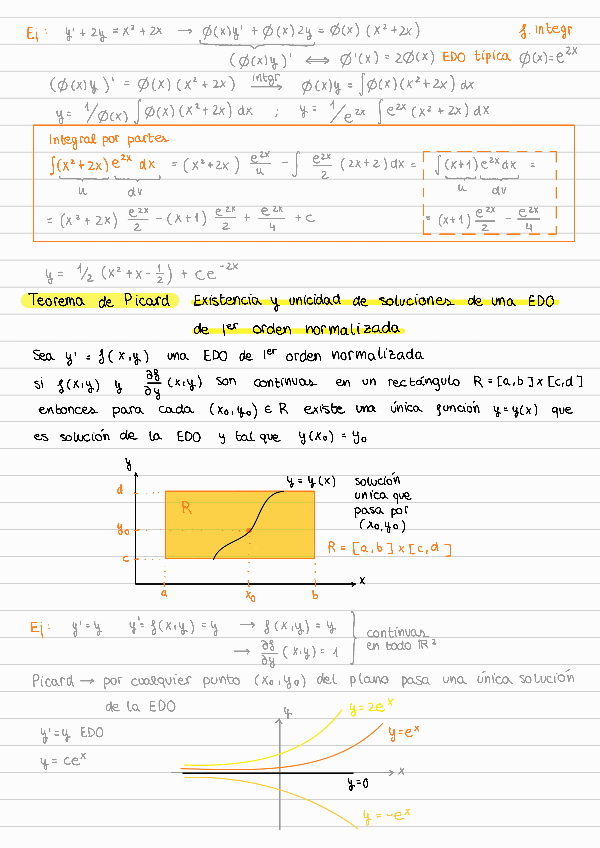 Ej: y' + 2y = x² + 2x → φ(x)y' + φ(x)2y = φ(x)(x² + 2x) f. integr
(φ(x)y)' ⟷ φ'(x) = 2φ(x) EDO típica φ(x) = e^{2x}
(φ(x)y)' = φ(x)(x² + 2x) —intgr→ φ(x)y = ∫φ(x)(x² + 2x) dx
y = 1/φ(x) ∫φ(x)(x² + 2x) dx ; y = 1/e^{2x} ∫ e^{2x} (x² + 2x) dx
Integral por partes
∫(x² + 2x) e^{2x} dx = (x² + 2x) e^{2x}/u − ∫ e^{2x}/2 (2x + 2) dx = ∫(x+1) e^{2x} dx =
u dv u dv
= (x² + 2x) e^{2x}/2 − (x+1) e^{2x}/2 + e^{2x}/4 + c = (x+1) e^{2x}/2 − e^{2x}/4
y = 1/2 (x² + x − 1/2) + ce^{-2x}
Teorema de Picard Existencia y unicidad de soluciones de una EDO
de 1er orden normalizada
Sea y' = f(x,y) una EDO de 1er orden normalizada
si f(x,y) y ∂f/∂y (x,y) son continuas en un rectángulo R = [a,b] x [c,d]
entonces para cada (x₀,y₀) ∈ R existe una única función y = y(x) que
es solución de la EDO y tal que y(x₀) = y₀
y
d
R
y₀
c
a x₀ b x
y = y(x) solución
unica que
pasa por
(x₀,y₀)
R = [a,b] x [c,d]
Ej: y' = y y' = f(x,y) = y → f(x,y) = y
→ ∂f/∂y (x,y) = 1
continuas
en todo ℝ²
Picard → por cualquier punto (x₀,y₀) del plano pasa una única solución
de la EDO
y' = y EDO
y = ce^x
y
y = 2e^x
y = e^x
x
y = 0
y = -e^x